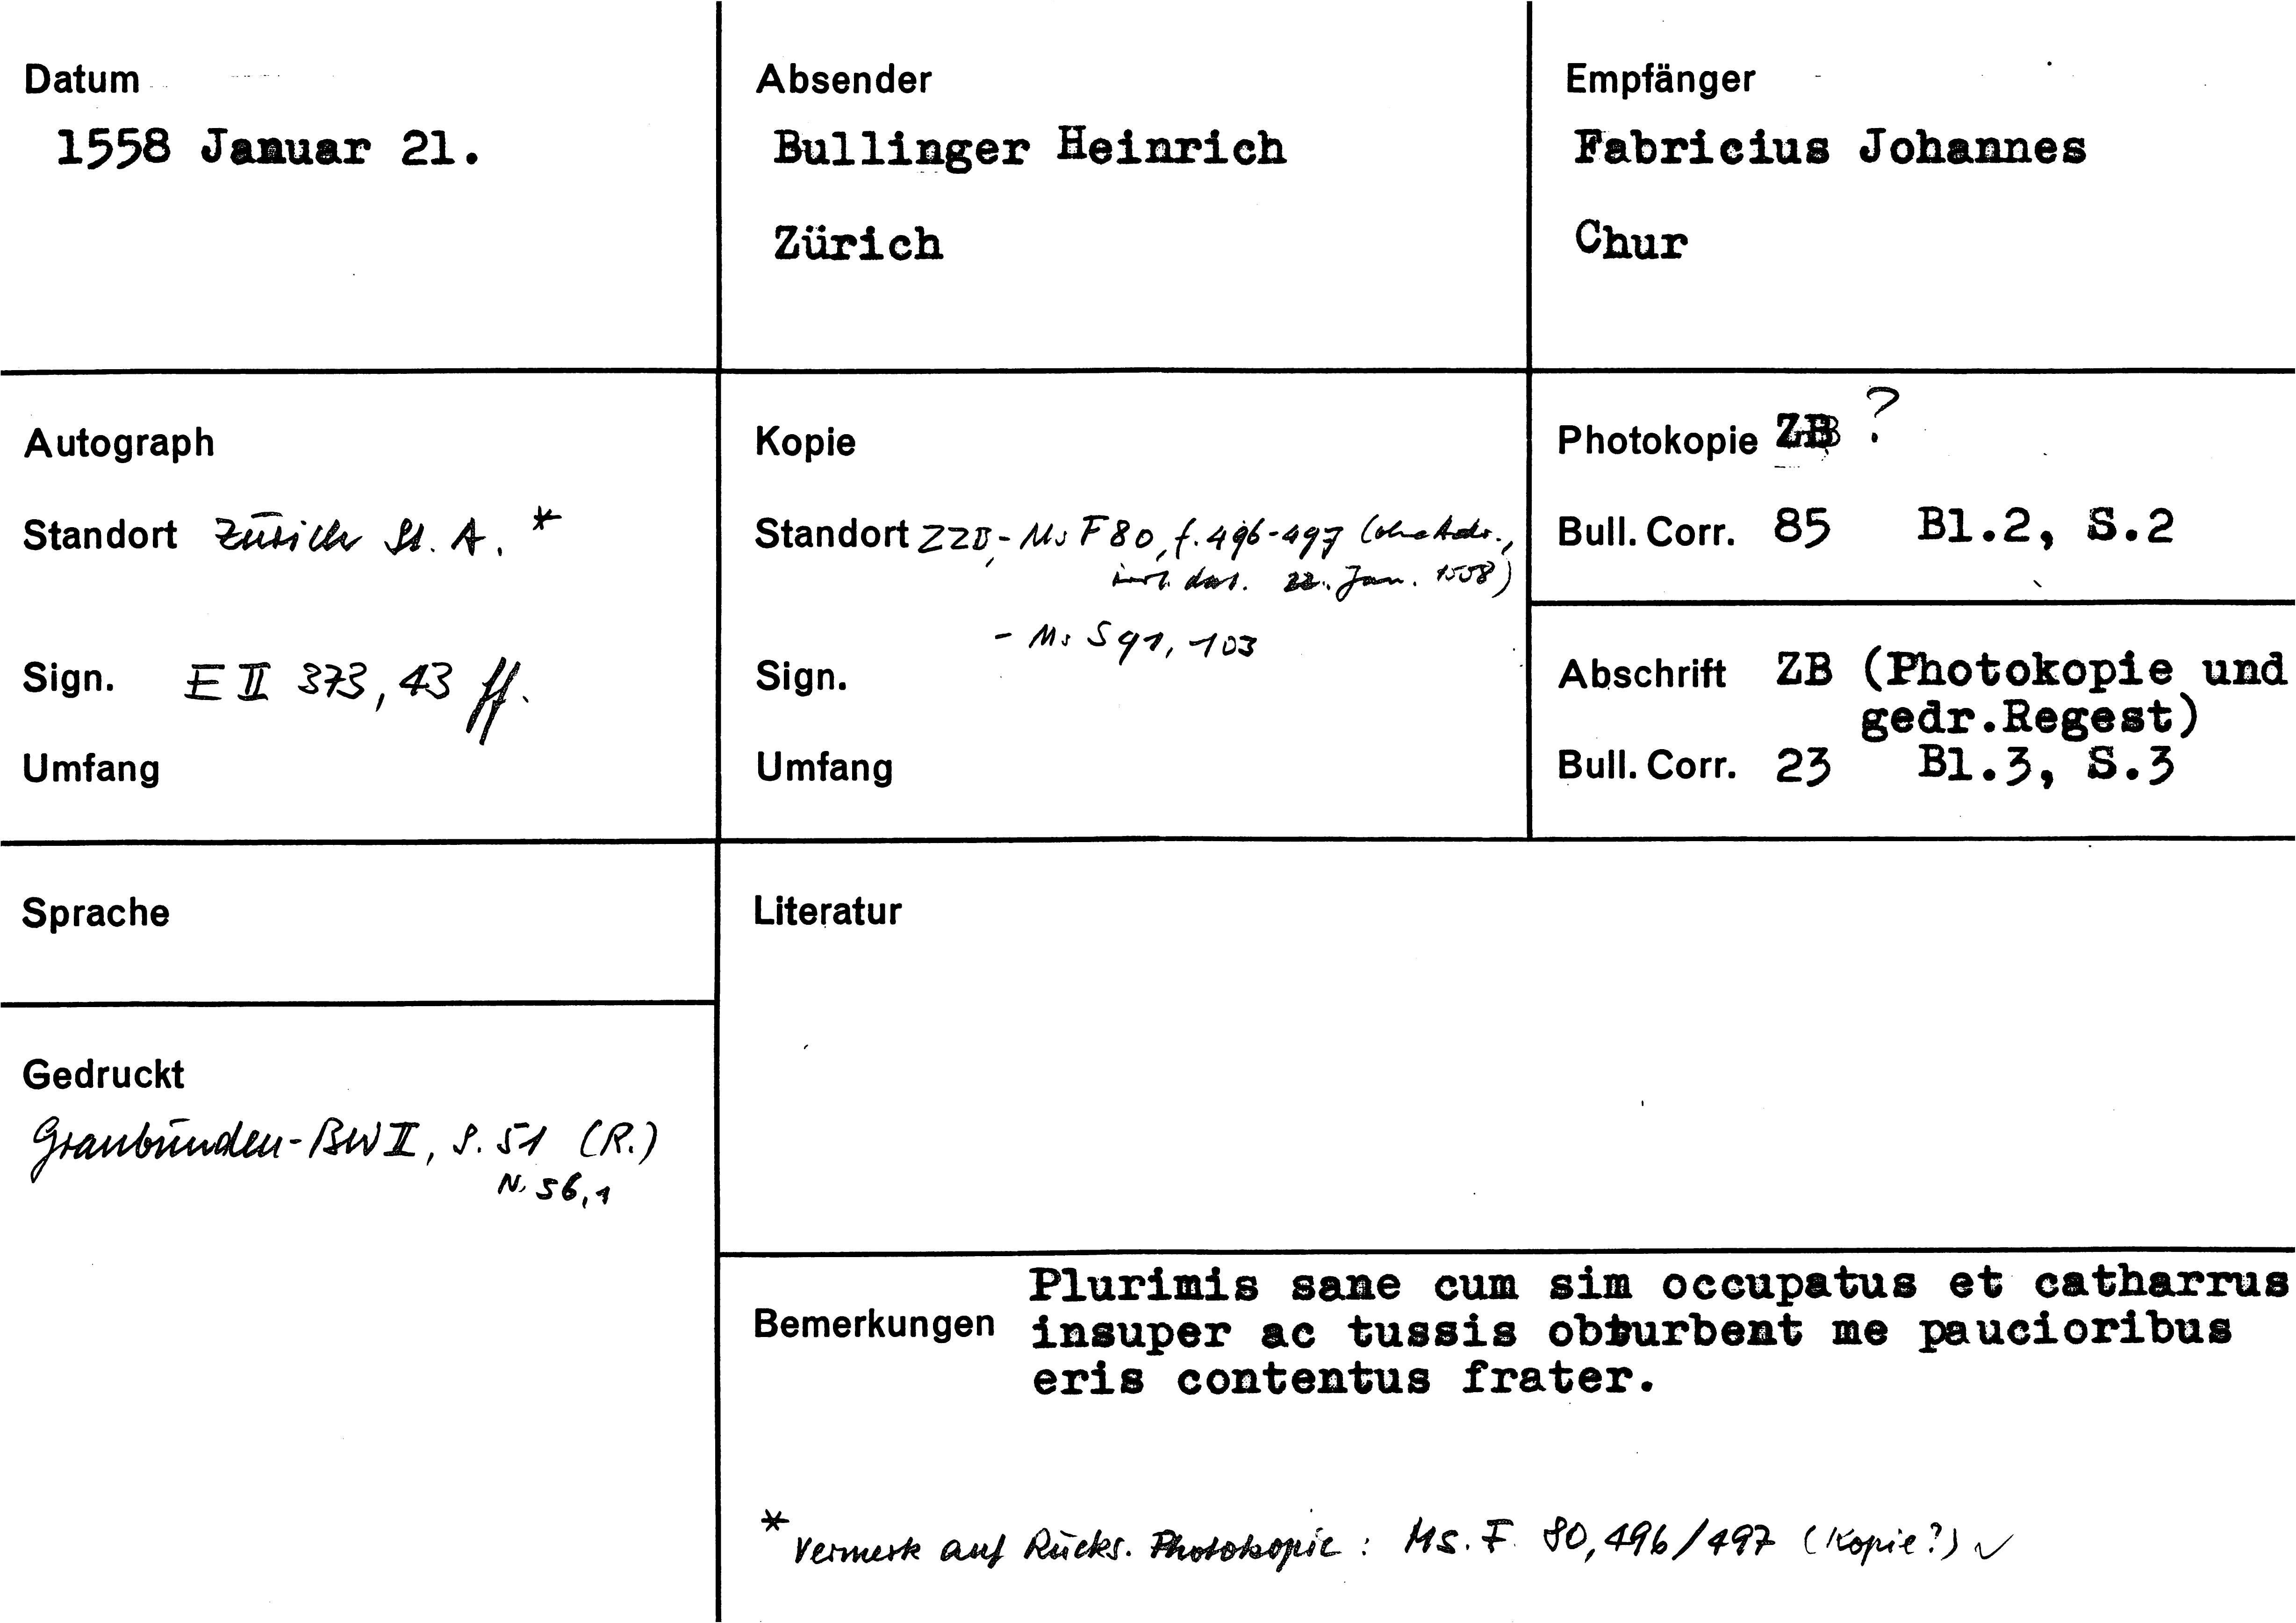 Datum
1558 Januar 21.
Absender
Bullinger Heinrich
Zürich
Empfänger
Fabricius Johannes
Chur
Autograph
Standort Zürich St. A. *
Sign. E II 373, 43 ff.
Umfang
Kopie
Standort ZZB, - Ms F 80, f. 496-497 (ohne Adr.,
dat. 22. Jan. 1558)
- Ms S 91, 103
Sign.
Umfang
Photokopie ZB ?
Bull. Corr. 85 Bl.2, S.2
Abschrift ZB (Photokopie und
gedr.Regest)
Bull. Corr. 23 Bl.3, S.3
Sprache
Gedruckt
Graubünden-BW II, S. 51 (R.)
N. 56,1
Literatur
Bemerkungen
Plurimis sane cum sim occupatus et catharrus
insuper ac tussis obturbent me paucioribus
eris contentus frater.
* Vermerk auf Rücks. Photokopie : Ms. F. 80, 496/497 (Kopie?) ✓